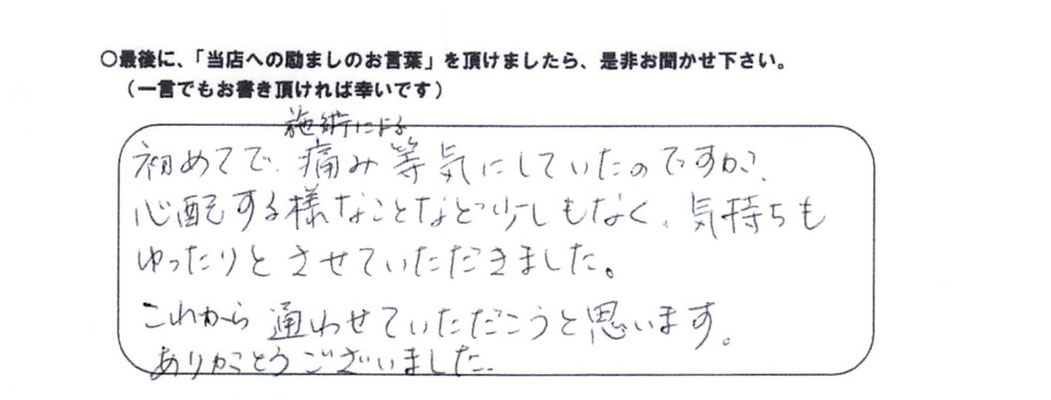 ○最後に、「当店への励ましのお言葉」を頂けましたら、是非お聞かせ下さい。
（一言でもお書き頂ければ幸いです）
施術による
初めてで、痛み等気にしていたのですが、
心配する様なことなど少しもなく、気持ちも
ゆったりとさせていただきました。
これから通わせていただこうと思います。
ありがとうございました。